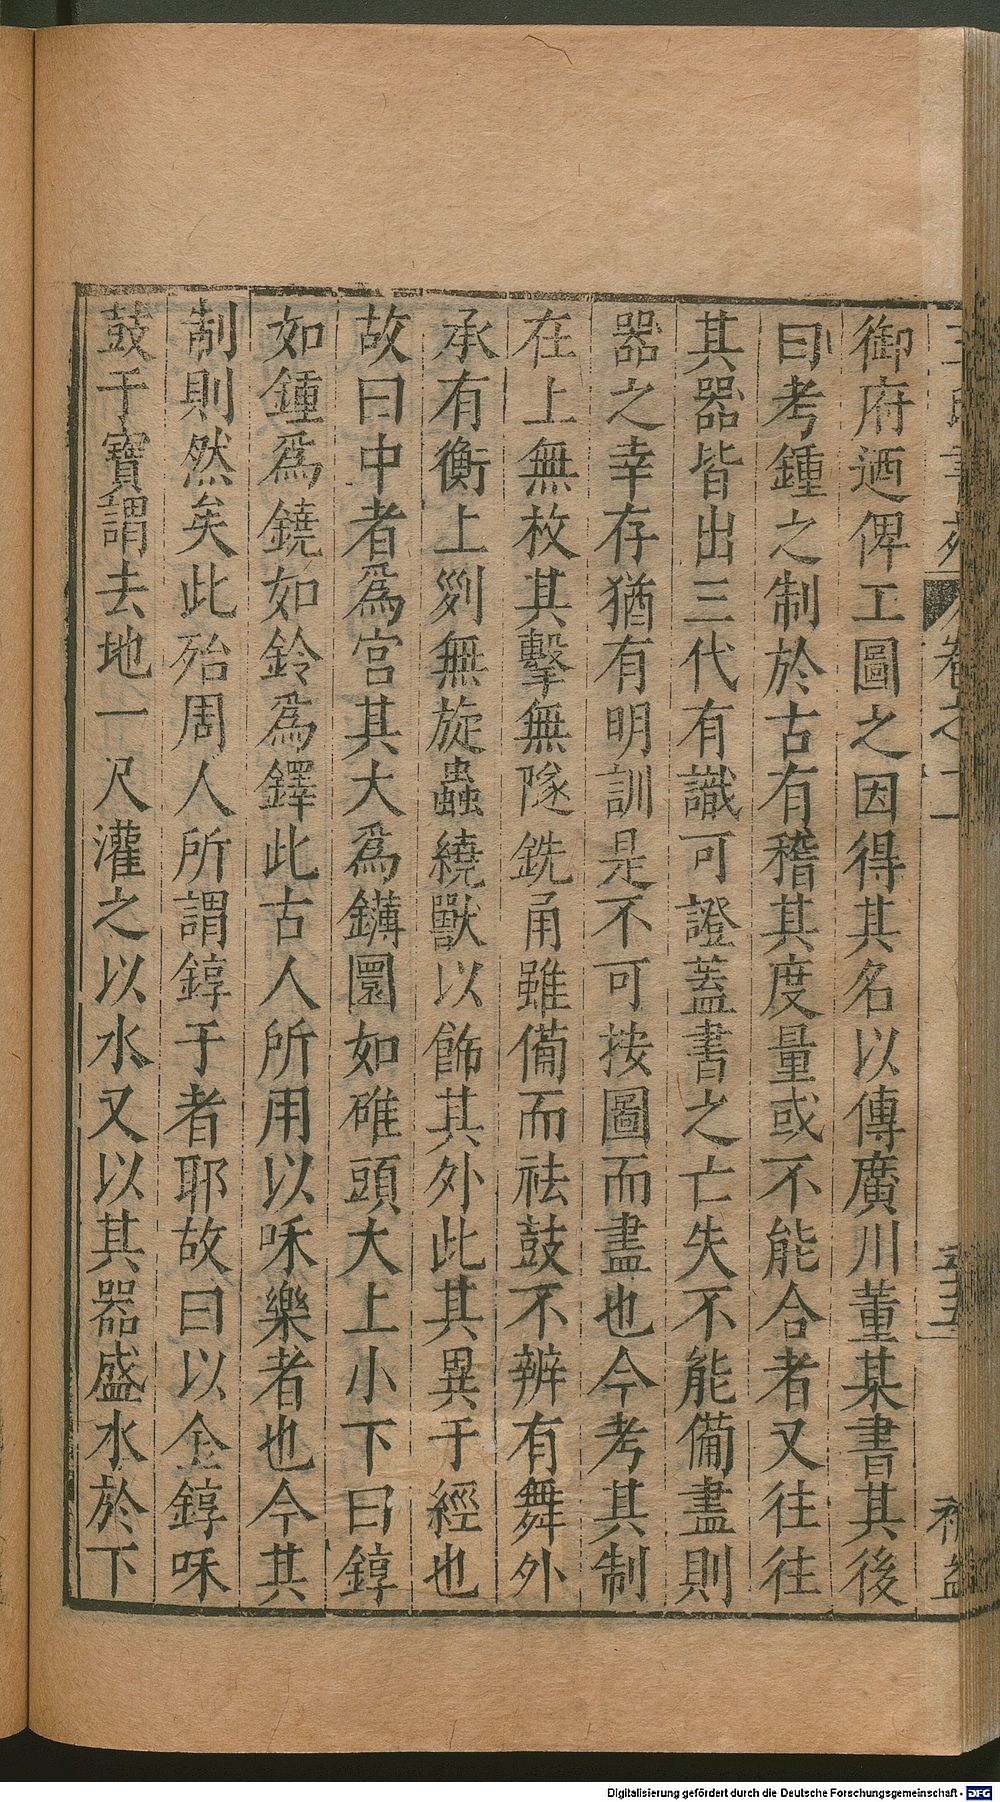 王氏書苑 卷之二 五十五
御府迺俾工圖之因得其名以傳廣川董某書其後
曰考鍾之制於古有稽其度量或不能合者又往往
其器皆出三代有識可證蓋書之亡失不能備盡則
器之幸存猶有明訓是不可按圖而盡也今考其制
在上無枚其擊無隧銑甬雖備而祛鼓不辨有舞外
承有衡上剡無旋蟲繞獸以飾其外此其異于經也
故曰中者爲宮其大爲鑮圜如碓頭大上小下曰錞
如鍾爲鐃如鈴爲鐸此古人所用以咊樂者也今其
制則然矣此殆周人所謂錞于者耶故曰以金錞咊
鼓于寶謂去地一尺灌之以水又以其器盛水於下
Digitalisierung gefördert durch die Deutsche Forschungsgemeinschaft - DFG